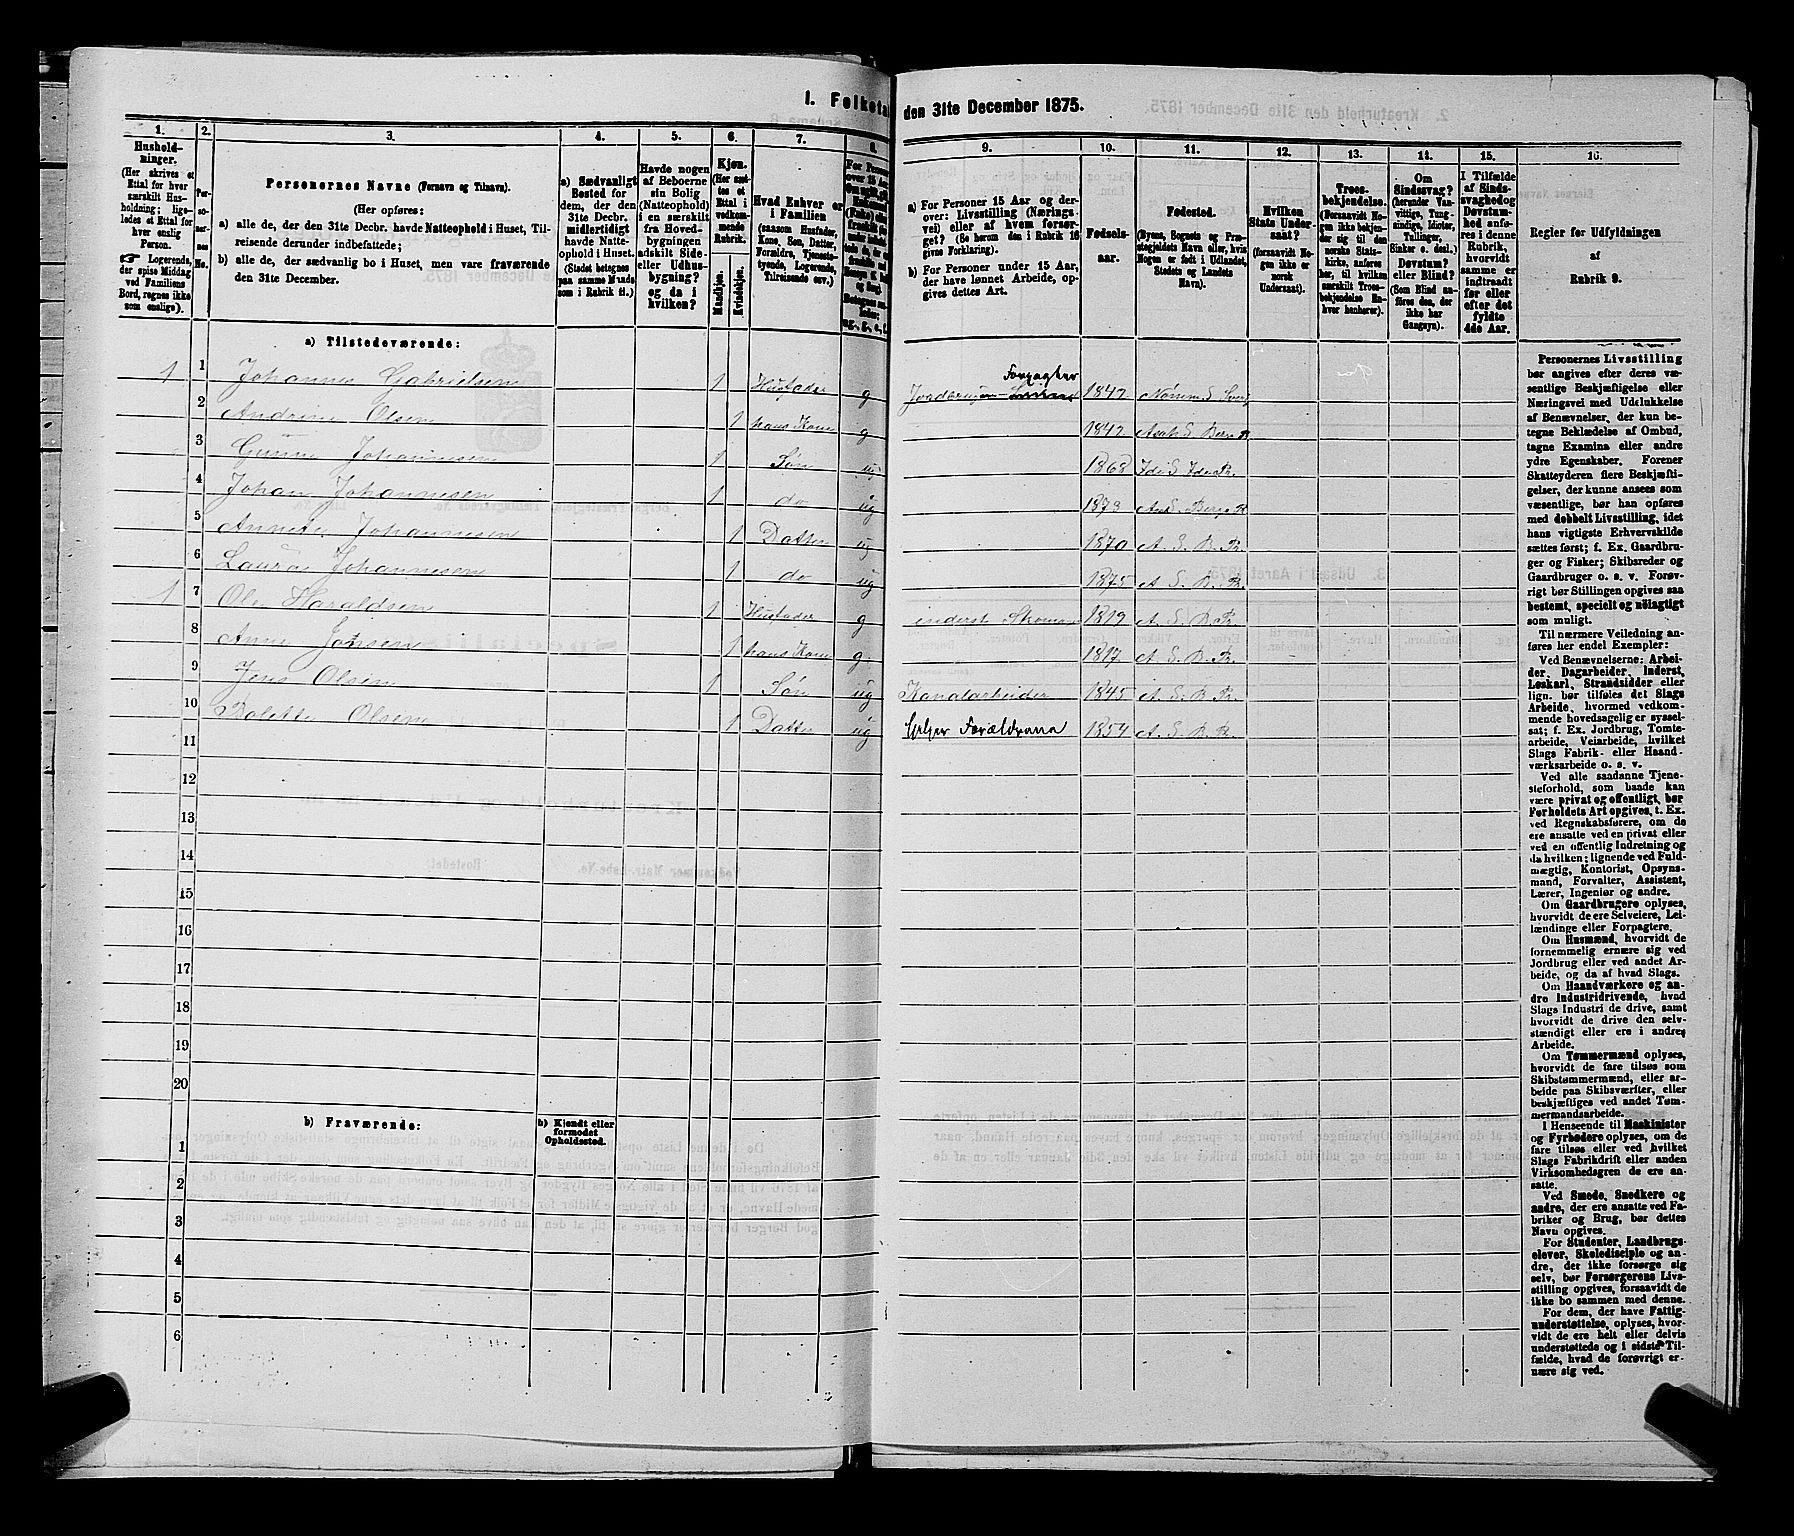 I. Folketa
den 31te December 1875.
1.
2.
3.
4.
5.
6.
7.
8.
9.
10.
11.
12.
13.
14.
15.
16.
Hushold-
ninger.
(Her skrives et
Ettal for hver
særskilt Hus-
holdning; lige-
ledes et Ettal for
hver enslig
Person.
☛ Logerende,
der spise Middag
ved Familiens
Bord, regnes ikke
som enslige).
Personernes No.
Personernes Navne (Fornavn og Tilnavn).
(Her opføres:
a) alle de, der den 31te Decbr. havde Natteophold i Huset, Til-
reisende derunder indbefattede;
b) alle de, der sædvanlig bo i Huset, men vare fraværende
den 31te December.
a) Sædvanligt
Bosted for
dem, der den
31te Decbr.
midlertidigt
havde Natte-
ophold i Huset.
(Stedet betegnes
paa samme Maade
som i Rubrik 11.)
Havde nogen
af Beboerne
sin Bolig
(Natteophold)
i en særskilt
fra Hoved-
bygningen
adskilt Side-
eller Udhus-
bygning?
og da i
hvilken?
Kjøn.
(Her sæt-
tes et
Ettal i
vedkom-
mende
Rubrik.
Mandkjøn.
Kvindekjøn.
Hvad Enhver er
i Familien
(saasom Husfader,
Kone, Søn, Datter,
Forældre, Tjeneste-
tyende, Logerende,
Tilreisende osv.)
a) For Personer 15 Aar og der-
over: Livsstilling (Nærings-
vei) eller af hvem forsør-
get? (Se herom den i Rubrik 16
givne Forklaring).
b) For Personer under 15 Aar,
der have lønnet Arbeide, op-
gives dettes Art.
Fødsels-
aar.
Fødested.
(Byens, Sognets og Præ-
stegjeldets Navn eller, hvis
Nogen er født i Udlandet,
Stedets og Landets
Navn).
Hvilken
Stats Under-
saat?
(forsaavidt No-
gen ikke er
norsk
Undersaat).
Troes-
bekjendelse.
(Forsaavidt No-
gen ikke bekjen-
der sig til den
norske Stats-
kirke, anføres
her, til hvilken
særskilt Troes-
bekjendelse En-
hver henhører).
Om
Sindssvag?
(herunder Van-
vittige, Tung-
sindige, Idioter,
Tullinger,
Sinker o. desl.).
Døvstum?
eller Blind?
(Som Blind an-
føres den, der
ikke har
Gangsyn).
I Tilfælde
af Sinds-
svaghed og
Døvstum-
hed anfø-
res i denne
Rubrik,
hvorvidt
samme er
indtraadt
før eller
efter det
fyldte
4de Aar.
Regler for Udfyldningen
af
Rubrik 9.
a) Tilstedeværende:
1 1 Johannes Gabrielsen 1 Husfader g Jordbruger Forpagter 1842
2 Andrine Olsen 1 hans Kone g 1842
3 Johannesen 1 Søn ug 1868 Ide S. Ide Pr.
4 Johan Johannesen 1 do ug 1873
5 Annette Johannesen 1 Datter ug 1870 A. S. B. Pr.
6 Laura Johannesen 1 do ug 1875 A. S. B. Pr.
1 7 Ole Haraldsen 1 Husfader g inderst 1819 A. S. B. Pr.
8 Anne Jensen 1 hans Kone g 1817 A. S. B. Pr.
9 Jens Olsen 1 Søn ug Kanalarbeider 1845 A. S. B. Pr.
10 Bolette Olsen 1 Datter ug Hjelper Forældrene 1854 A. S. B. Pr.
11
12
13
14
15
16
17
18
19
20
b) Fraværende:
b) Kjendt eller
formodet
Opholdssted.
1
2
3
4
5
6
Personernes Livsstilling
bør angives efter deres væ-
sentlige Beskjæftigelse eller
Næringsvei med Udelukkelse
af Benævnelser, der kun be-
tegne Beklædelse af Ombud,
tagne Examina eller andre
ydre Egenskaber. Forener
Skatteyderen flere Beskjæfti-
gelser, der kunne ansees som
væsentlige, bør han opføres
med dobbelt Livsstilling, idet
hans vigtigste Erhvervskilde
sættes først; f. Ex. Gaardbru-
ger og Fisker; Skibsreder og
Gaardbruger o. s. v. Forøv-
rigt bør Stillingen opgives saa
bestemt, specielt og nøiagtigt
som muligt.
Til nærmere Veiledning an-
føres her endel Exempler:
Ved Benævnelserne: Arbei-
der, Dagarbeider, Inderst,
Løskarl, Strandsidder eller
lign. bør tilføies det Slags
Arbeide, hvormed vedkom-
mende hovedsagelig er syssel-
sat; f. Ex. Jordbrug, Tomte-
arbeide, Veiarbeide, hvilket
Slags Fabrik- eller Haand-
værksarbeide o. s. v.
Ved alle saadanne Tjene-
steforhold, som baade kan
være privat og offentligt, bør
Forholdets Art opgives, t. Ex.
ved Regnskabsførere, om de
ere ansatte ved en privat eller
ved en offentlig Indretning og
da hvilken; lignende ved Fuld-
mægtig, Kontorist, Opsyns-
mand, Forvalter, Assistent,
Lærer, Ingeniør og andre.
Om Gaardbrugere oplyses,
hvorvidt de ere Selveiere, Lei-
lændinge eller Forpagtere.
Om Husmænd, hvorvidt de
fornemmelig ernære sig ved
Jordbrug eller ved andet Ar-
beide, og da af hvad Slags.
Om Haandværkere og an-
dre Industridrivende, hvad
Slags Industri de drive, samt
hvorvidt de drive den selv-
stændigt eller ere i andres
Arbeide.
Om Tømmermænd oplyses,
hvorvidt de fare tilsøs som
Skibstømmermænd, eller ar-
beide paa Skibsværfter, eller
beskjæftiges ved andet Tøm-
mermandsarbeide.
I Henseende til Maskinister
og Fyrbødere oplyses, om de
fare tilsøs eller ved hvilket
Slags Fabrikdrift eller anden
Virksomhedsgren de ere an-
satte.
Ved Smede, Snedkere og
andre, der ere ansatte ved Fa-
briker og Brug, bør dettes
Navn opgives.
For Studenter, Landbrugs-
elever, Skoledisciple og an-
dre, der ikke forsørge sig
selv, bør Forsørgerens Livs-
stilling opgives, forsaavidt de
ikke bo sammen med denne.
For dem, der have Fattig-
understøttelse, oplyses, hvor-
vidt de ere helt eller delvis
understøttede og i sidste Til-
fælde, hvad de forøvrigt er-
nære sig ved.